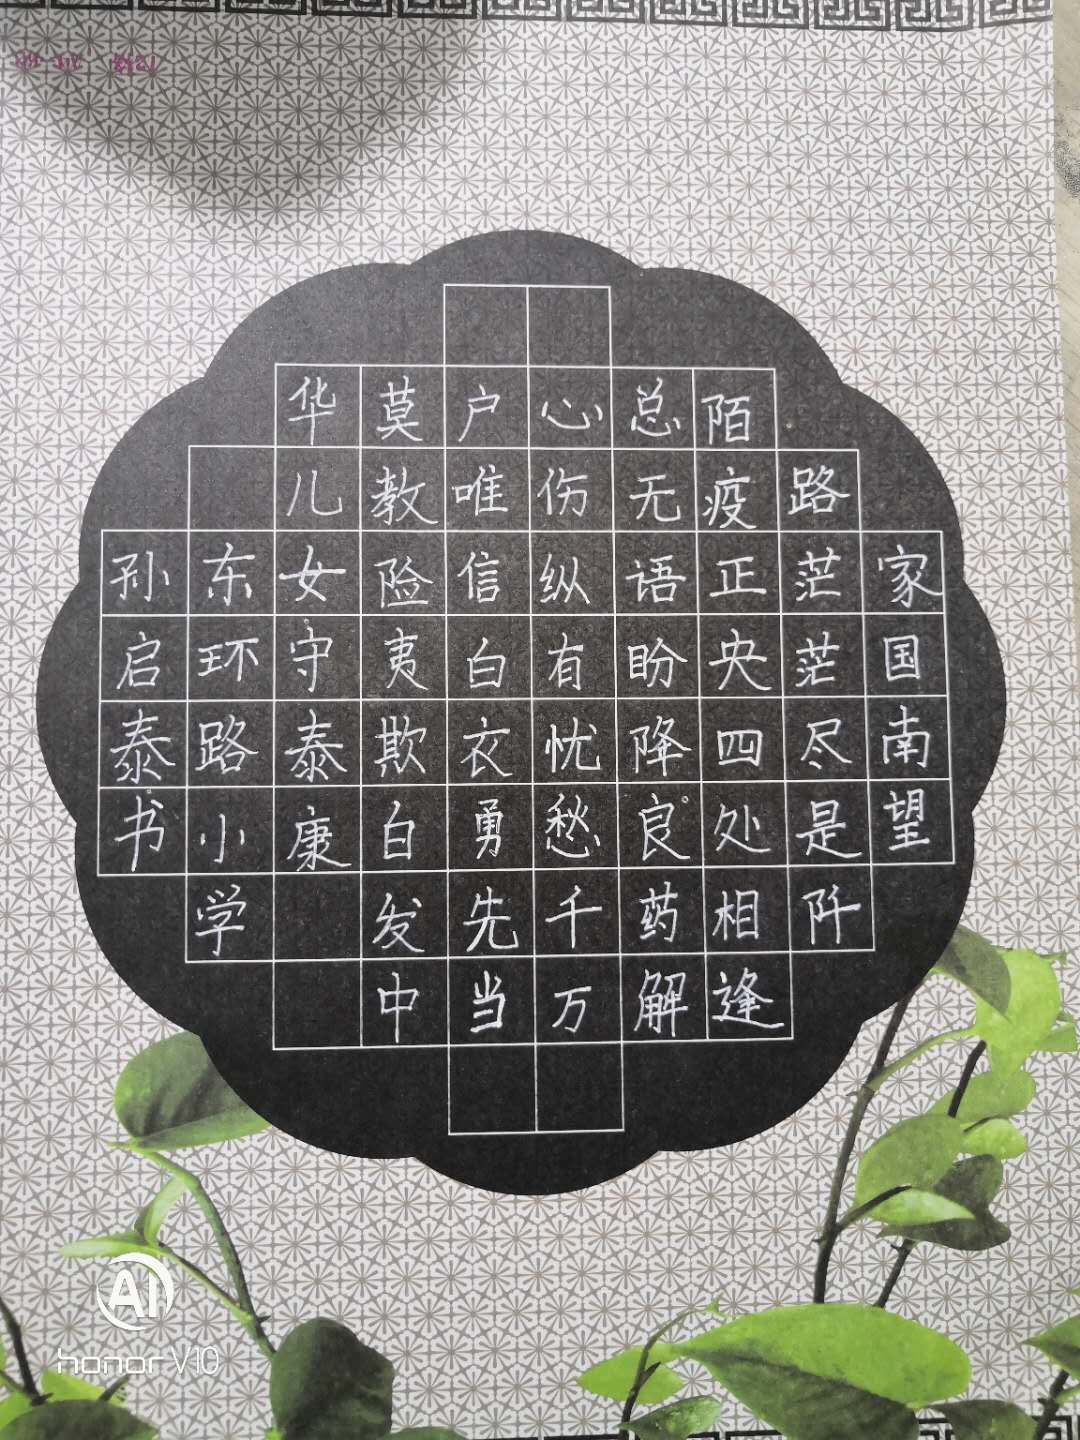 家国南望
路茫茫尽是阡
陌疫正央四处相逢
总无语盼降良药解
心伤纵有忧愁千万
户唯信白衣勇先当
莫教险夷欺白发中
华儿女守泰康
东环路小学
孙启泰书
AI
honor V10